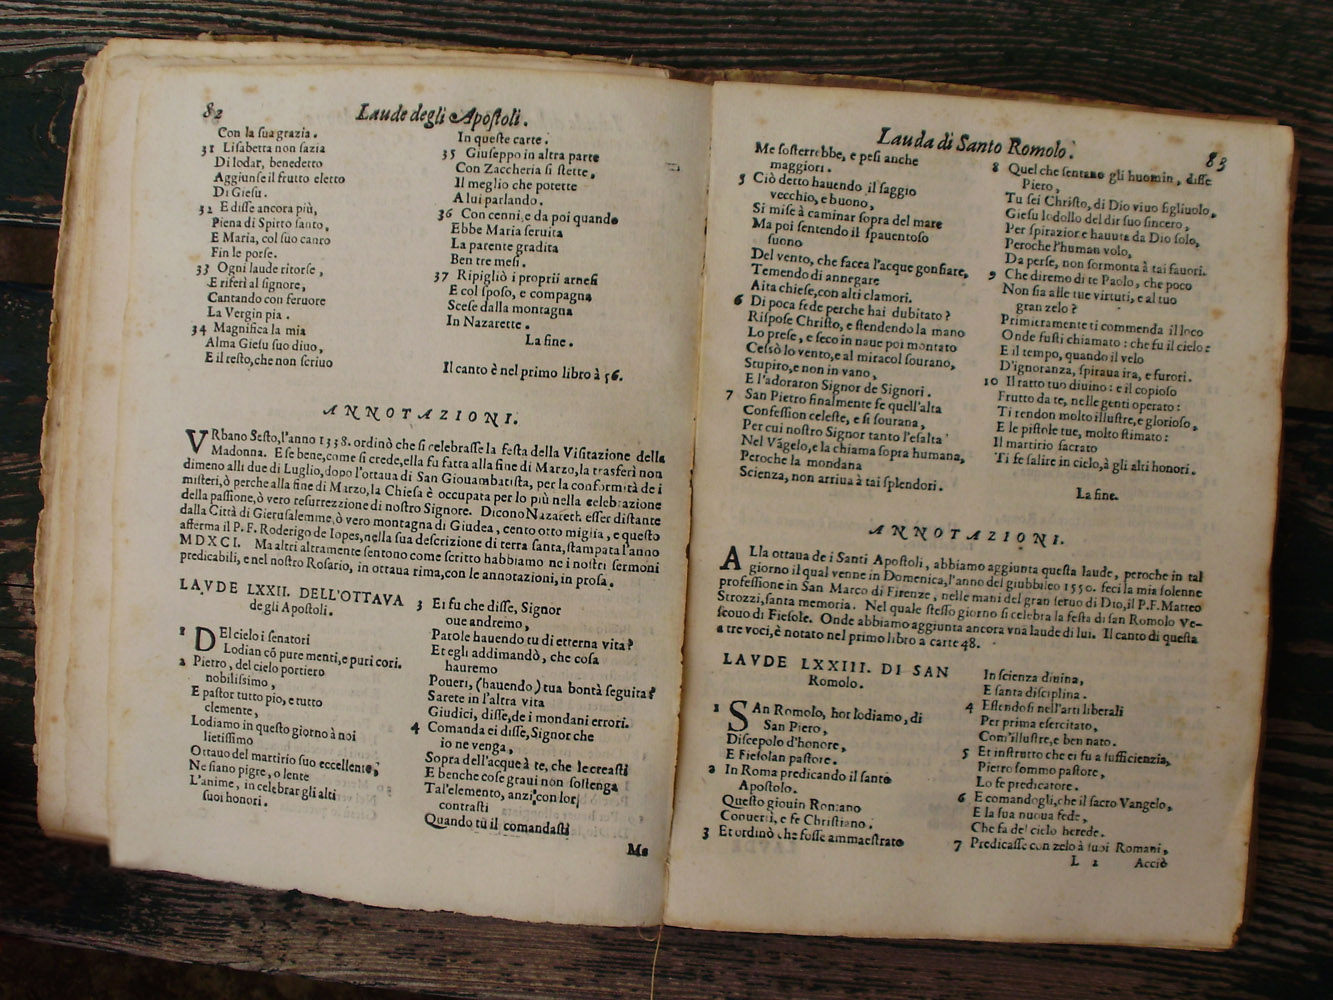 82
Laude degli Apostoli.
Con la sua grazia.
31 Lisabetta non sazia
Di lodar, benedetto
Aggiunse il frutto eletto
Di Giesu.
32 E disse ancora più,
Piena di Spirto santo,
E Maria, col suo canto
Fin le porse.
33 Ogni laude ritorse,
E riferì al signore,
Cantando con feruore
La Vergin pia.
34 Magnifica la mia
Alma Giesu suo diuo,
E il resto, che non scriuo
In queste carte.
35 Giuseppo in altra parte
Con Zaccheria si stette,
Il meglio che potette
A lui parlando.
36 Con cenni, e da poi quando
Ebbe Maria seruita
La parente gradita
Ben tre mesi.
37 Ripigliò i proprii arnesi
E col sposo, e compagna
Scese dalla montagna
In Nazarette.
La fine.
Il canto è nel primo libro à 56.
ANNOTAZIONI.
VRbano Sesto, l'anno 1338. ordinò che si celebrasse la festa della Visitazione della
Madonna. E se bene, come si crede, ella fu fatta alla fine di Marzo, la trasferì non
dimeno alli due di Luglio, dopo l'ottaua di San Giouambatista, per la conformità de i
misteri, ò perche alla fine di Marzo, la Chiesa è occupata per lo più nella celebrazione
della passione, ò vero resurrezzione di nostro Signore. Dicono Nazareth esser distante
dalla Città di Gierusalemme, ò vero montagna di Giudea, cento otto miglia, e questo
afferma il P. F. Roderigo de Iopes, nella sua descrizione di terra santa, stampata l'anno
MDXCI. Ma altri altramente sentono come scritto habbiamo ne i nostri sermoni
predicabili, e nel nostro Rosario, in ottaua rima, con le annotazioni, in prosa.
LAVDE LXXII. DELL'OTTAVA
degli Apostoli.
1 DEl cielo i senatori
Lodian cō pure menti, e puri cori.
2 Pietro, del cielo portiero
nobilissimo,
E pastor tutto pio, e tutto
clemente,
Lodiamo in questo giorno à noi
lietissimo
Ottauo del martirio suo eccellente,
Ne siano pigre, o lente
L'anime, in celebrar gli alti
suoi honori.
3 Ei fu che disse, Signor
oue andremo,
Parole hauendo tu di etterna vita?
Et egli addimandò, che cosa
hauremo
Poueri, (hauendo) tua bontà seguita?
Sarete in l'altra vita
Giudici, disse, de i mondani errori.
4 Comanda ei disse, Signor che
io ne venga,
Sopra dell'acque à te, che le creasti
E benche cose graui non sostenga
Tal'elemento, anzi, con lor
contrasti
Quando tù il comandasti
Me
Lauda di Santo Romolo.
83
Me sosterrebbe, e pesi anche
maggiori.
5 Ciò detto hauendo il saggio
vecchio, e buono,
Si mise à caminar sopra del mare
Ma poi sentendo il spauentoso
suono
Del vento, che facea l'acque gonfiare,
Temendo di annegare
Aita chiese, con alti clamori.
6 Di poca fede perche hai dubitato?
Rispose Christo, e stendendo la mano
Lo prese, e seco in naue poi montato
Cessò lo vento, e al miracol sourano,
Stupiro, e non in vano,
E l'adoraron Signor de Signori.
7 San Pietro finalmente fe quell'alta
Confession celeste, e sì sourana,
Per cui nostro Signor tanto l'esalta
Nel Vāgelo, e la chiama sopra humana,
Peroche la mondana
Scienza, non arriua à tai splendori.
8 Quel che sentano gli huomin, disse
Piero,
Tu sei Christo, di Dio viuo figliuolo,
Giesu lodollo del dir suo sincero,
Per spirazione hauuta da Dio solo,
Peroche l'human volo,
Da perse, non sormonta à tai fauori.
9 Che diremo di te Paolo, che poco
Non sia alle tue virtuti, e al tuo
gran zelo?
Primieramente ti commenda il loco
Onde fusti chiamato: che fu il cielo:
E il tempo, quando il velo
D'ignoranza, spiraua ira, e furori.
10 Il ratto tuo diuino: e il copioso
Frutto da te, nelle genti operato:
Ti rendon molto illustre, e glorioso,
E le pistole tue, molto stimato:
Il martirio sacrato
Ti fe salire in cielo, à gli alti honori.
La fine.
ANNOTAZIONI.
ALla ottaua de i Santi Apostoli, abbiamo aggiunta questa laude, peroche in tal
giorno il qual venne in Domenica, l'anno del giubbileo 1550. feci la mia solenne
professione in San Marco di Firenze, nelle mani del gran seruo di Dio, il P. F. Matteo
Strozzi, santa memoria. Nel quale stesso giorno si celebra la festa di san Romolo Ve-
scouo di Fiesole. Onde abbiamo aggiunta ancora vna laude di lui. Il canto di questa
a tre voci, è notato nel primo libro a carte 48.
LAVDE LXXIII. DI SAN
Romolo.
1 SAn Romolo, hor lodiamo, di
San Piero,
Discepolo d'honore,
E Fiesolan pastore.
2 In Roma predicando il santo
Apostolo.
Questo giouin Romano
Conuertì, e fe Christiano.
3 Et ordinò che fosse ammaestrato
In scienza diuina,
E santa disciplina.
4 Essendosi nell'arti liberali
Per prima esercitato,
Com'illustre, e ben nato.
5 Et instrutto che ei fu a sufficienzia,
Pietro sommo pastore,
Lo fe predicatore.
6 E comandogli, che il sacro Vangelo,
E la sua nuoua fede,
Che fa del cielo herede.
7 Predicasse con zelo à suoi Romani,
L 2 Acciò